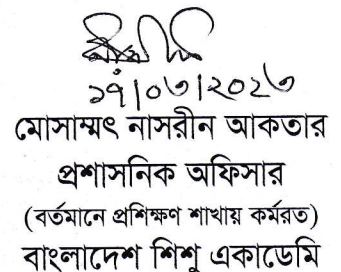 ১৭/০৩/২০২৩
মোসাম্মৎ নাসরীন আকতার
প্রশাসনিক অফিসার
(বর্তমানে প্রশিক্ষণ শাখায় কর্মরত)
বাংলাদেশ শিশু একাডেমি